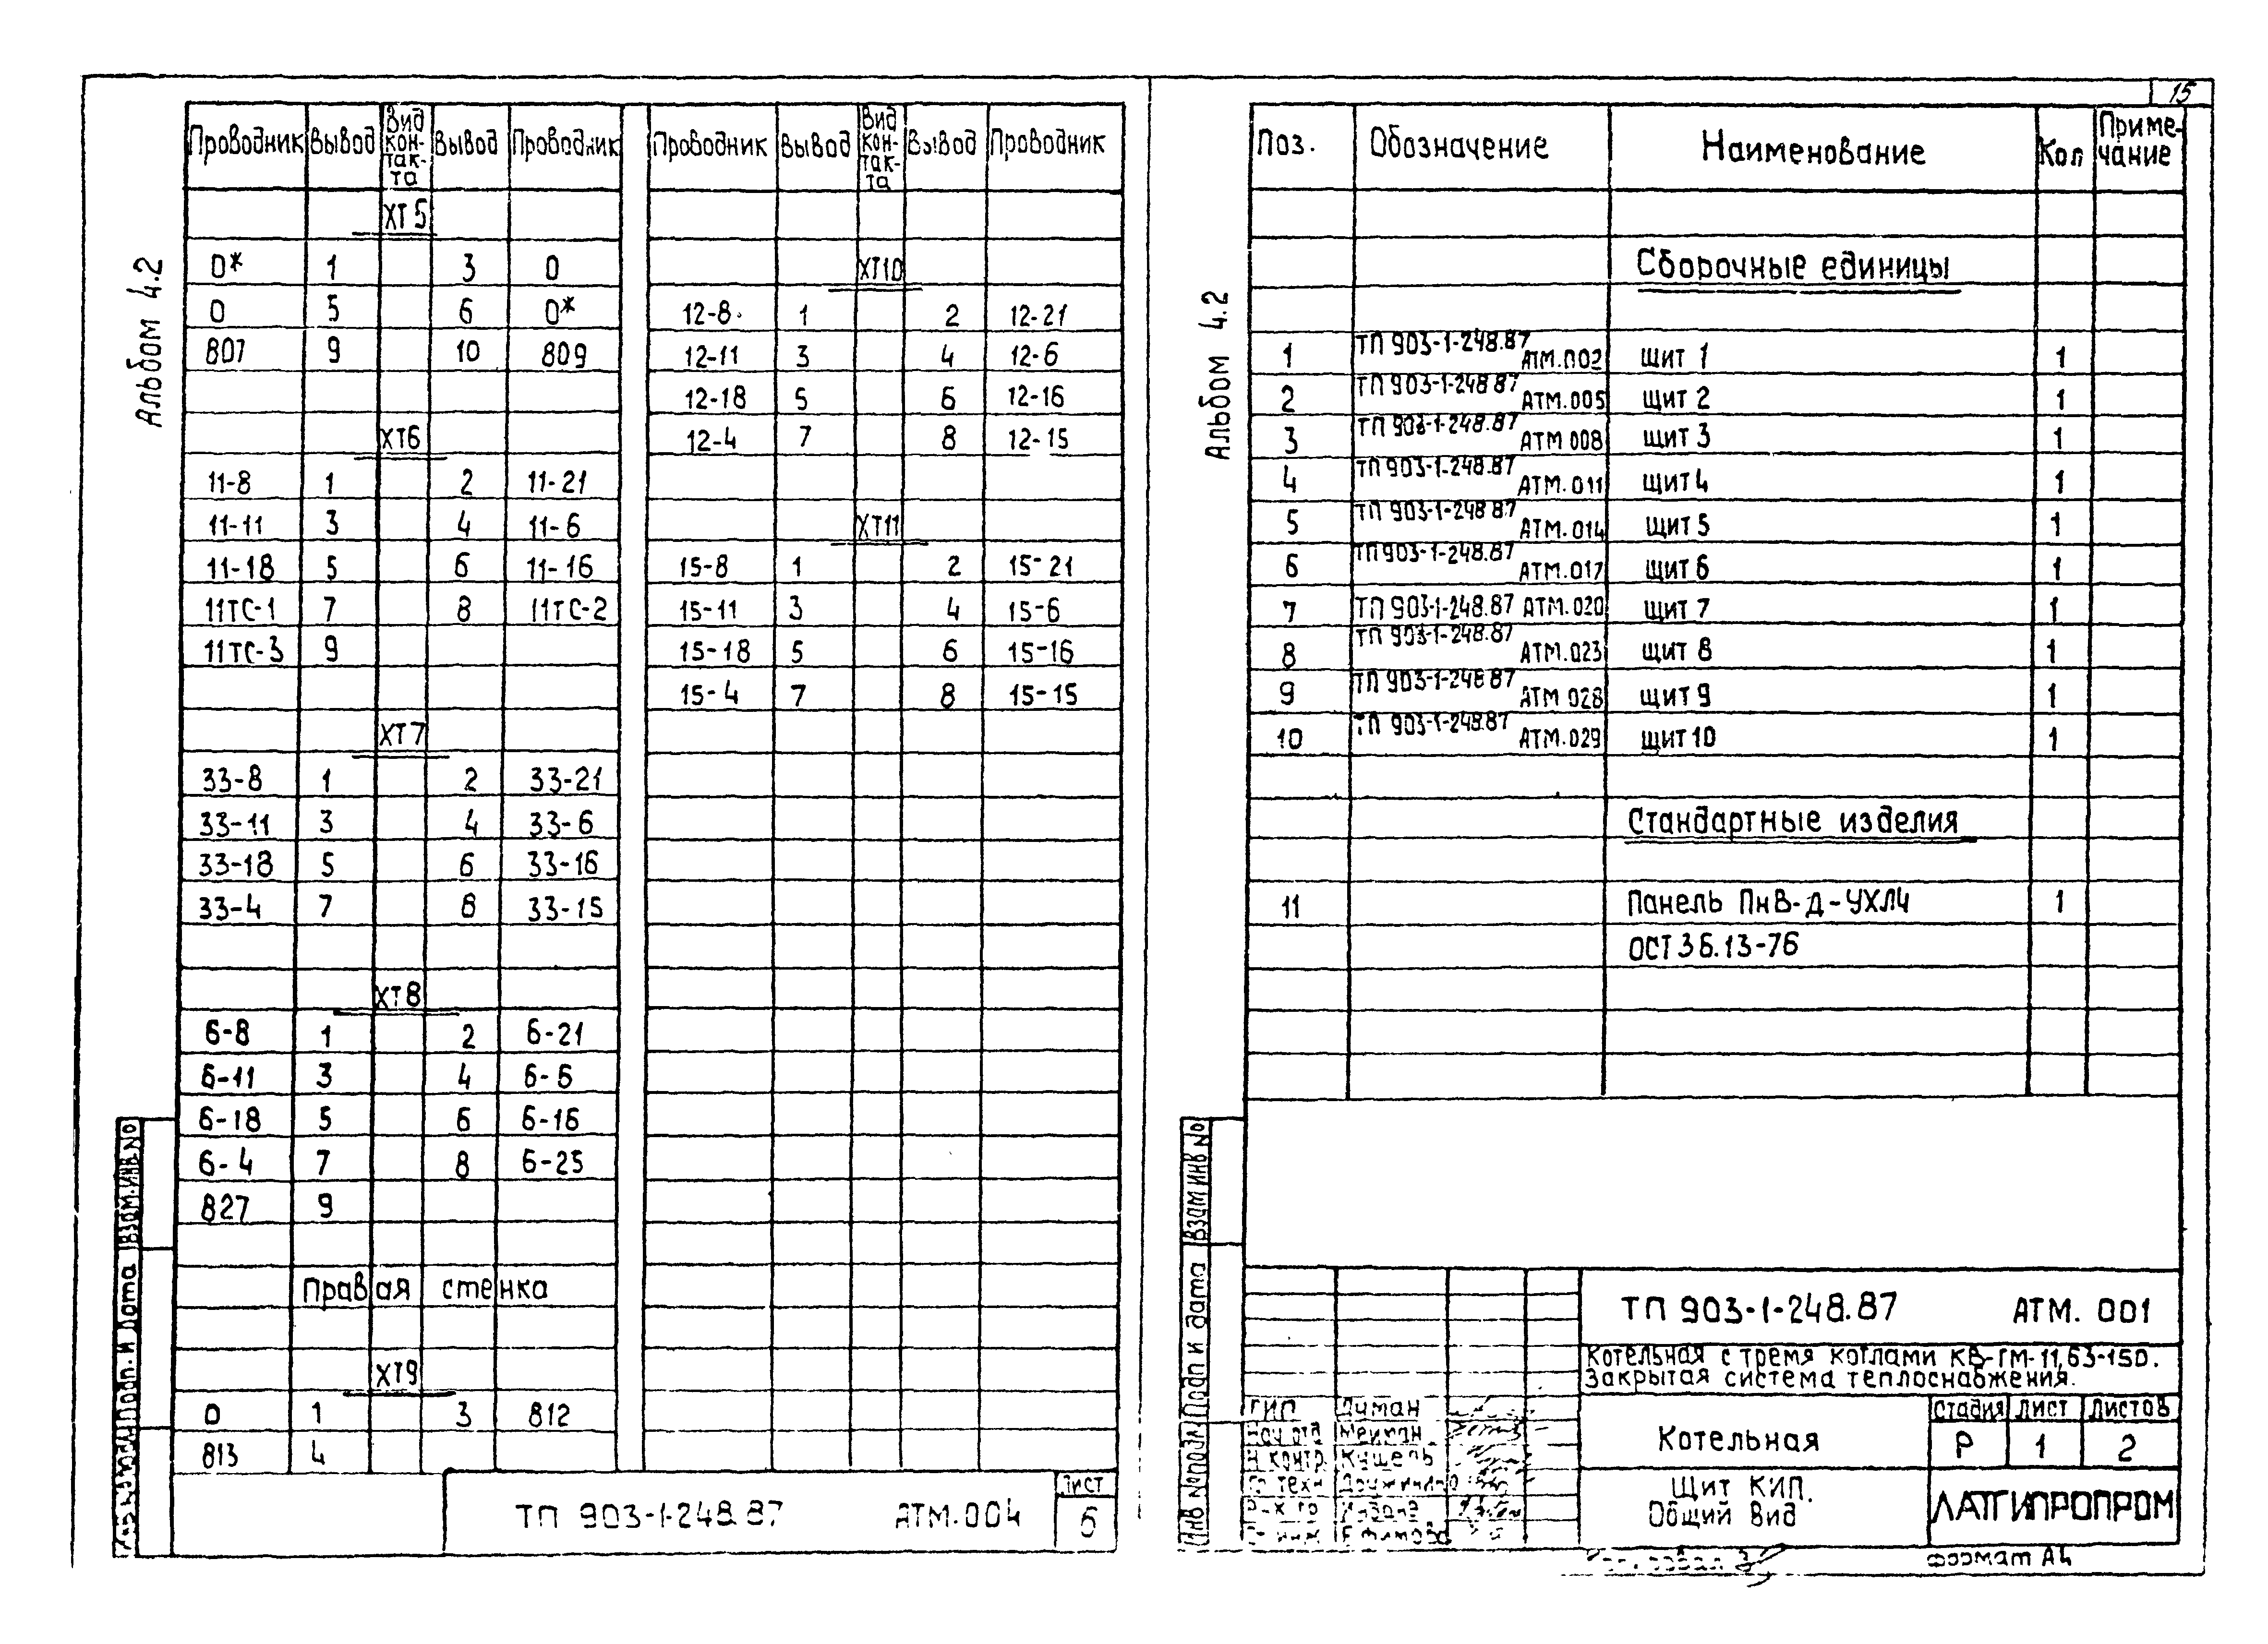 Альбом 4.2
Проводник Вывод Вид кон-так-та Вывод Проводник
ХТ5
0* 1 3 0
0 5 6 0*
807 9 10 809
ХТ6
11-8 1 2 11-21
11-11 3 4 11-6
11-18 5 6 11-16
11ТС-1 7 8 11ТС-2
11ТС-3 9
ХТ7
33-8 1 2 33-21
33-11 3 4 33-6
33-18 5 6 33-16
33-4 7 8 33-15
ХТ8
6-8 1 2 6-21
6-11 3 4 6-6
6-18 5 6 6-16
6-4 7 8 6-25
827 9
Правая стенка
ХТ9
0 1 3 812
813 4
Проводник Вывод Вид кон-так-та Вывод Проводник
ХТ10
12-8 1 2 12-21
12-11 3 4 12-6
12-18 5 6 12-16
12-4 7 8 12-15
ХТ11
15-8 1 2 15-21
15-11 3 4 15-6
15-18 5 6 15-16
15-4 7 8 15-15
Взам.инв №
Подп. и дата
ТП 903-1-248.87 АТМ.004
Лист
6
15
Альбом 4.2
Поз. Обозначение Наименование Кол Приме-чание
Сборочные единицы
1 ТП 903-1-248.87 АТМ.002 щит 1 1
2 ТП 903-1-248.87 АТМ.005 щит 2 1
3 ТП 903-1-248.87 АТМ 008 щит 3 1
4 ТП 903-1-248.87 АТМ.011 щит 4 1
5 ТП 903-1-248 87 АТМ.014 щит 5 1
6 ТП 903-1-248.87 АТМ.017 щит 6 1
7 ТП 903-1-248.87 АТМ.020 щит 7 1
8 ТП 903-1-248.87 АТМ.023 щит 8 1
9 ТП 903-1-248 87 АТМ 028 щит 9 1
10 ТП 903-1-248.87 АТМ.029 щит 10 1
Стандартные изделия
11 Панель ПнВ-Д-УХЛ4 1
ОСТ 36.13-76
Взам инв №
Подп и дата
Инв № подл
ТП 903-1-248.87 АТМ. 001
Котельная с тремя котлами КВ-ГМ-11,63-150.
Закрытая система теплоснабжения.
ГИП
Нач отд
Н контр. Кушель
Котельная
Стадия Лист Листов
Р 1 2
Щит КИП.
Общий вид
ЛАТГИПРОПРОМ
Формат А4